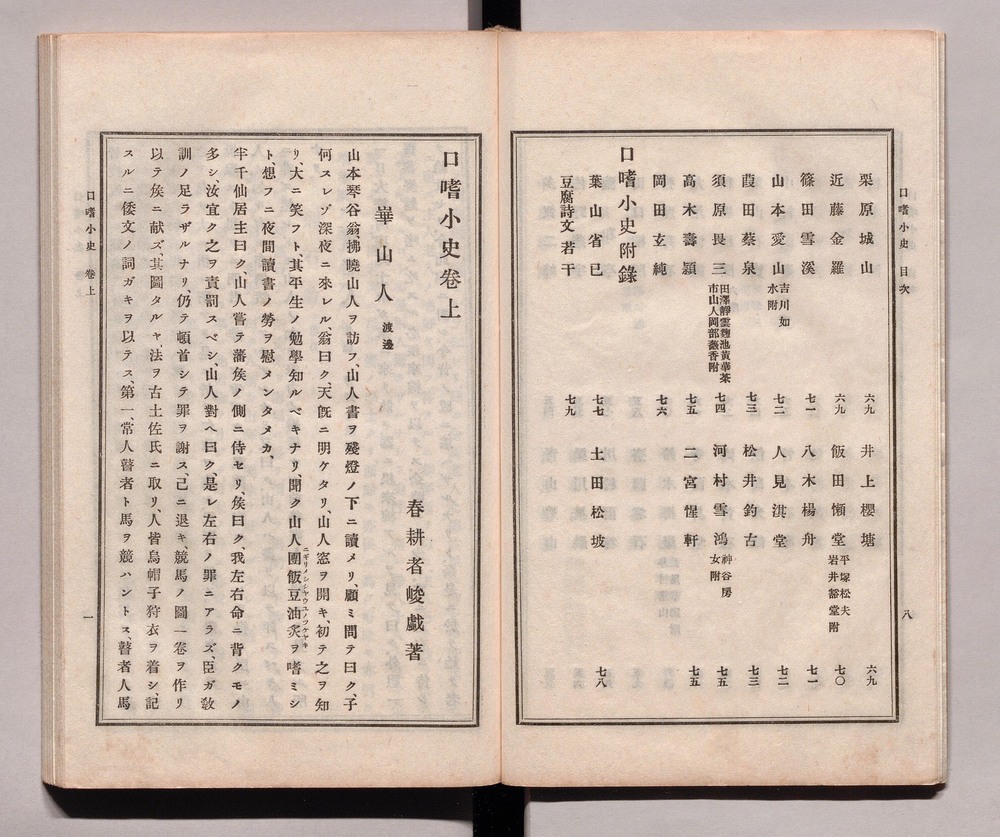 口嗜小史 目次
八
栗原城山 六九 井上櫻塘 六九
近藤金羅 六九 飯田懶堂 平塚松夫岩井谽堂附 七〇
篠田雪溪 七一 八木楊舟 七一
山本愛山 吉川如水附 七二 人見淇堂 七二
葭田蔡泉 七三 松井釣古 七三
須原畏三 田澤靜雲麴池黃華茶市山人岡部蠡香附 七四 河村雪鴻 神谷房女附 七五
高木壽穎 七五 二宮惺軒 七五
岡田玄純 七六
口嗜小史附錄
葉山省已 七七 土田松坡 七八
豆腐詩文若干 七九
口嗜小史卷上
春耕者峻戱著
崋山人 渡邊
山本琴谷翁、拂曉山人ヲ訪フ、山人書ヲ殘燈ノ下ニ讀メリ、顧ミ問テ曰ク、子
何スレゾ深夜ニ來レル、翁曰ク、天旣ニ明ケタリ、山人窓ヲ開キ、初テ之ヲ知
リ、大ニ笑フト、其平生ノ勉學知ルベキナリ、聞ク山人團飯豆油炙ニギリメシシヤウユノツケヤキヲ嗜ミシ
ト、想フニ夜間讀書ノ勞ヲ慰メンタメカ、
半千仙居主曰ク、山人嘗テ藩侯ノ側ニ侍セリ、侯曰ク、我左右命ニ背クモノ
多シ、汝宜ク之ヲ責罰スベシ、山人對ヘ曰ク、是レ左右ノ罪ニアラズ、臣ガ敎
訓ノ足ラザルナリ、仍テ頓首シテ罪ヲ謝ス、已ニ退キ、競馬ノ圖一卷ヲ作リ
以テ侯ニ献ズ、其圖タルヤ、法ヲ古土佐氏ニ取リ、人皆烏帽子狩衣ヲ着シ、記
スルニ倭文ノ詞ガキヲ以テス、第一常人瞽者ト馬ヲ競ハントス、瞽者人馬
口嗜小史 卷上
一